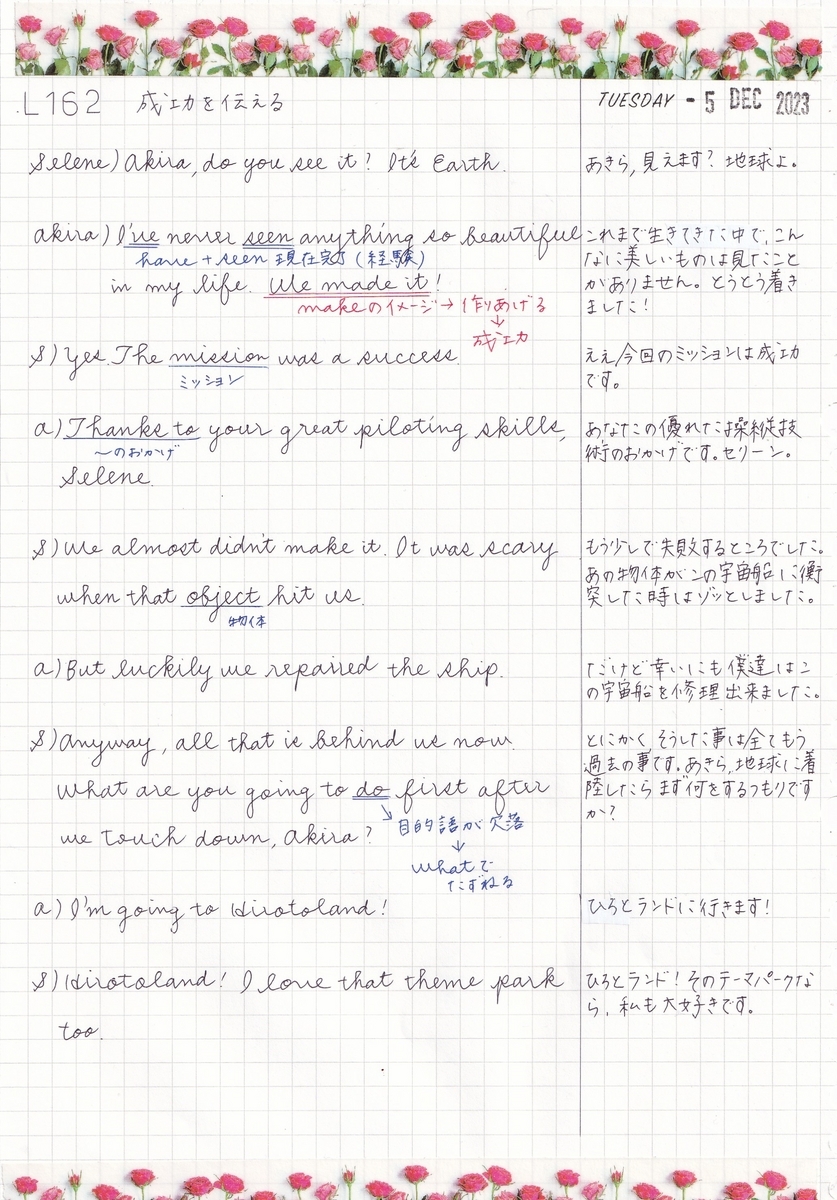 L162 成功を伝える
TUESDAY - 5 DEC 2023
Selene) Akira, do you see it? It's Earth.
あきら, 見えます? 地球よ。
Akira) I've never seen anything so beautiful
have + seen 現在完了 (経験)
in my life. We made it!
makeのイメージ → 作りあげる
↓
成功
これまで生きてきた中で, こん
なに美しいものは見たこと
がありません。とうとう着き
ました!
S) Yes. The mission was a success.
ミッション
ええ, 今回のミッションは成功
です。
A) Thanks to your great piloting skills,
〜のおかげ
Selene.
あなたの優れた操縦技
術のおかげです。セリーン。
S) We almost didn't make it. It was scary
when that object hit us.
物体
もう少しで失敗するところでした。
あの物体がこの宇宙船に衝
突した時はゾッとしました。
A) But luckily we repaired the ship.
だけど幸いにも僕達はこ
の宇宙船を修理出来ました。
S) Anyway, all that is behind us now.
What are you going to do first after
↘ 目的語が欠落
we touch down, Akira?
↓
whatで
たずねる
とにかく, そうした事は全てもう
過去の事です。あきら, 地球に着
陸したらまず何をするつもりです
か?
A) I'm going to Hirotoland!
ひろとランドに行きます!
S) Hirotoland! I love that theme park
too.
ひろとランド! そのテーマパークな
ら, 私も大好きです。